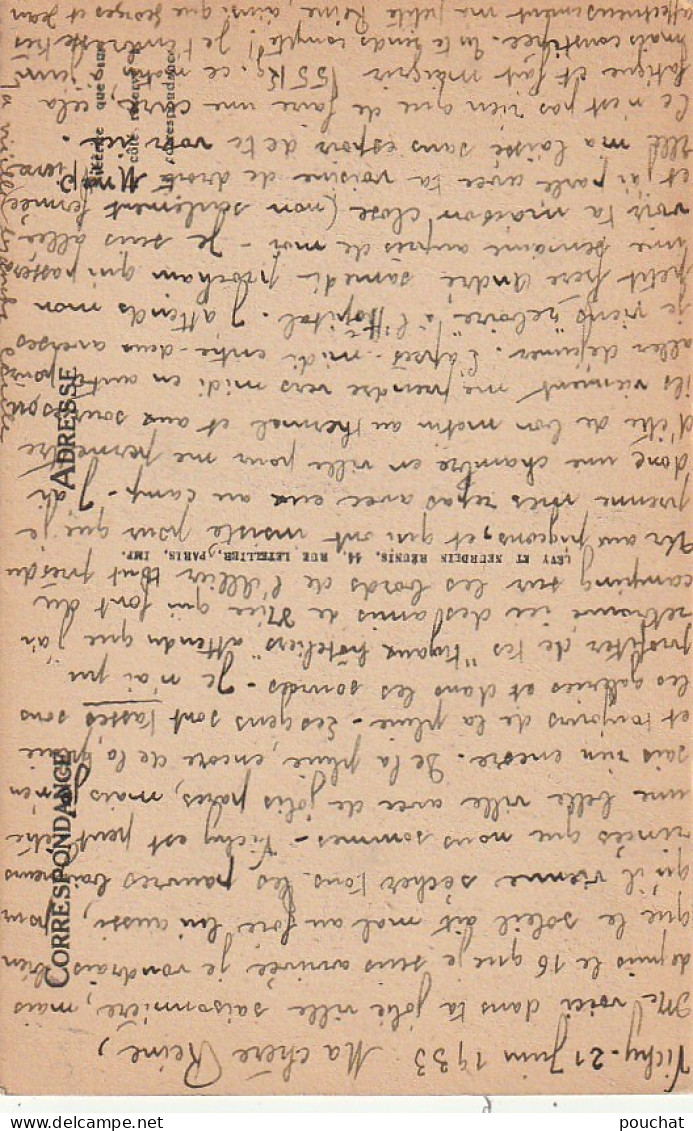 Vichy - 21 Juin 1933 Ma chère Reine,
Me voici dans ta jolie ville saisonnière, mais
depuis le 16 que je suis arrivée je voudrais bien
que le soleil ait mal au foie lui aussi, pour
qu'il vienne sécher tous les pauvres baigneurs
rincés que nous sommes - Vichy est peut être
une belle ville avec de jolis parcs, mais je n'en
sais rien encore. De la pluie, encore de la pluie
et toujours de la pluie - Les gens sont tassés sous
les galeries et dans les sounds - Je n'ai pu
profiter de tes "tuyaux hôteliers" attendu que j'ai
retrouvé ici des amis de Nice qui font du
camping sur les bords de l'Allier tout près du
tir aux pigeons, et qui ont insisté pour que je
prenne mes repas avec eux au camp - J'ai
donc une chambre en ville pour me permettre
d'être de bon matin au thermal et aux sources, puis
ils viennent me prendre vers midi en auto pour
aller déjeuner. L'après-midi entre deux averses
je viens "reboire" à l'Hôpital. J'attends mon
petit père André samedi prochain qui passera
une semaine auprès de moi - Je suis allée
voir ta maison close (non seulement fermée)
et j'ai parlé avec ta voisine de droite
elle m'a laissé sans espoir de te voir ici.
Ce n'est pas rien que de faire une cure, cela
fatigue et fait maigrir (55 Kg. ce matin, j'en suis
mais constipée. Tu te rends compte!) Je t'embrasse très
affectueusement ma petite Reine, ainsi que Georges et Jean
Ta vieille
CORRESPONDANCE
ADRESSE
LÉVY ET NEURDEIN RÉUNIS, 44, RUE LETELLIER, PARIS, IMP.
pouchat for www.delcampe.net